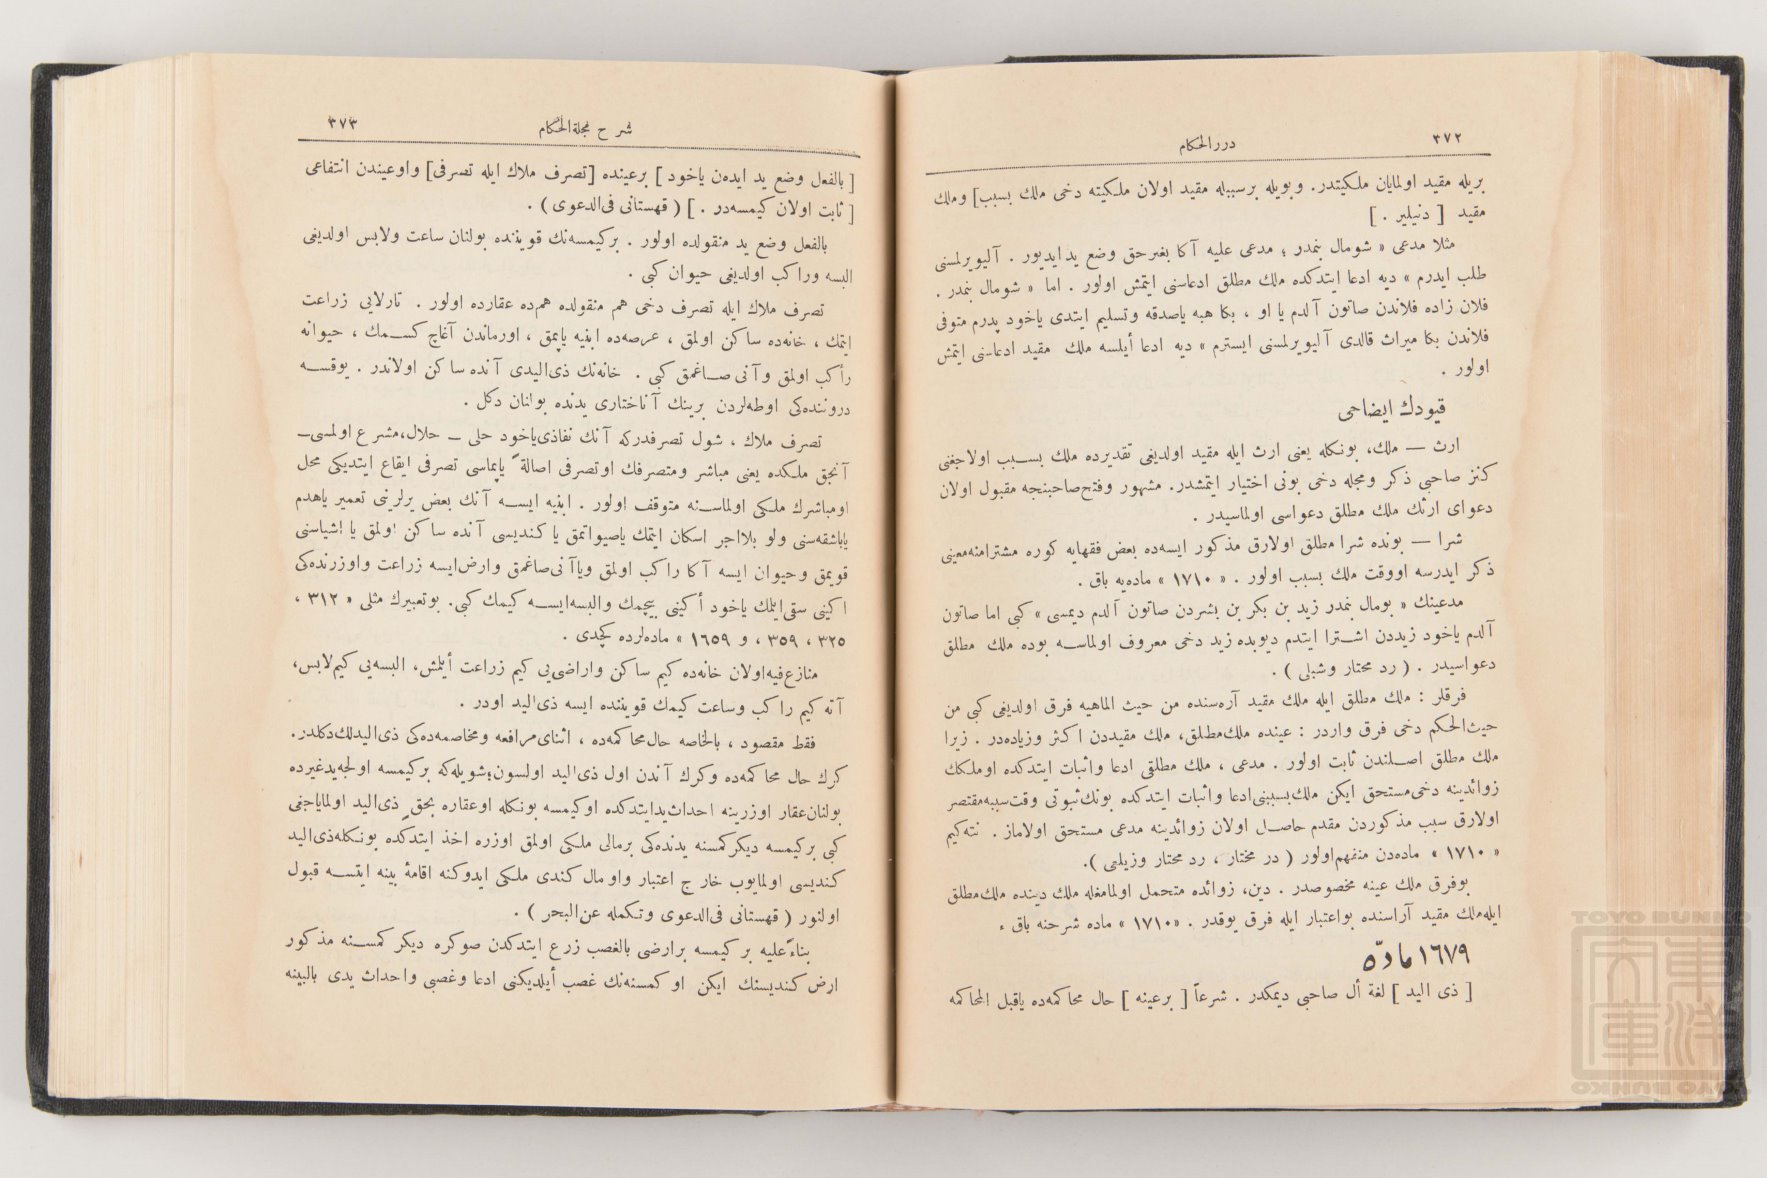 ٣٧٢
دررالحكام
بريله مقيد اولمايان ملكيتدر. وبويله برسببله مقيد اولان ملكيته دخى ملك بسبب] وملك
مقيد [ دنيلير . ]
مثلا مدعى « شومال بنمدر ؛ مدعى عليه آكا بغيرحق وضع يدايديور . آليويرلمسنى
طلب ايدرم » ديه ادعا ايتدكده ملك مطلق ادعاسنى ايتمش اولور . اما « شومال بنمدر .
فلان زاده فلاندن صاتون آلدم يا او ، بكا هبه ياصدقه وتسليم ايتدى ياخود پدرم متوفى
فلاندن بكا ميراث قالدى آليويرلمسنى ايسترم » ديه ادعا أيلسه ملك مقيد ادعاسنى ايتمش
اولور .
قيودك ايضاحى
ارث — ملك، بونكله يعنى ارث ايله مقيد اولديغى تقديرده ملك بسبب اولاجغنى
كنز صاحبى ذكر ومجله دخى بونى اختيار ايتمشدر. مشهور وفتح‌صاحبنجه مقبول اولان
دعواى ارثك ملك مطلق دعواسى اولماسيدر .
شرا — بونده شرا مطلق اولارق مذكور ايسه‌ده بعض فقهايه كوره مشترامنه‌معينى
ذكر ايدرسه اووقت ملك بسبب اولور . « ١٧١٠ » ماده‌يه باق .
مدعينك « بومال بنمدر زيد بن بكر بن بشردن صاتون آلدم ديمسى » كبى اما صاتون
آلدم ياخود زيددن اشترا ايتدم ديوبده زيد دخى معروف اولماسه بوده ملك مطلق
دعواسيدر . ( رد محتار وشبلى ) .
فرقلر : ملك مطلق ايله ملك مقيد آره‌سنده من حيث الماهيه فرق اولديغى كبى من
حيث‌الحكم دخى فرق واردر : عينده ملك‌مطلق، ملك مقيددن اكثر وزياده‌در . زيرا
ملك مطلق اصلندن ثابت اولور . مدعى ، ملك مطلقى ادعا واثبات ايتدكده اوملكك
زوائدينه دخى‌مستحق ايكن ملك‌بسببنى‌ادعا واثبات ايتدكده بونك‌ثبوتى وقت‌سببه‌مقتصر
اولارق سبب مذكوردن مقدم حاصل اولان زوائدينه مدعى مستحق اولاماز . نته‌كيم
« ١٧١٠ » ماده‌دن منفهم‌اولور ( در مختار ، رد محتار وزيلعى ).
بوفرق ملك عينه مخصوصدر . دين، زوائده متحمل اولمامغله ملك دينده ملك‌مطلق
ايله‌ملك مقيد آراسنده بواعتبار ايله فرق يوقدر . «١٧١٠ » ماده شرحنه باق .
١٦٧٩ مادّه
[ ذى اليد ] لغة أل صاحبى ديمكدر . شرعاً [ برعينه ] حال محاكمه‌ده ياقبل المحاكمه
شرح مجلة‌الاحكام
٣٧٣
[ بالفعل وضع يد ايده‌ن ياخود ] برعينده [تصرف ملاك ايله تصرفى] واوعيندن انتفاعى
[ ثابت اولان كيمسه‌در . ] ( قهستانى فى‌الدعوى ) .
بالفعل وضع يد منقولده اولور . بركيمسه‌نك قوينده بولنان ساعت ولابس اولديغى
البسه وراكب اولديغى حيوان كبى .
تصرف ملاك ايله تصرف دخى هم منقولده هم‌ده عقارده اولور . تارلايى زراعت
ايتمك ، خانه‌ده ساكن اولمق ، عرصه‌ده ابنيه ياپمق ، اورماندن آغاج كسمك ، حيوانه
رأكب اولمق وآنى صاغمق كبى . خانه‌نك ذى‌اليدى آنده ساكن اولاندر . يوقسه
دروننده‌كى اوطه‌لردن برينك آناختارى يدنده بولنان دكل .
تصرف ملاك ، شول تصرفدركه آنك نفاذى‌ياخود حلى — حلال،مشرع اولمسى—
آنجق ملكده يعنى مباشر ومتصرفك اوتصرفى اصالةً ياپماسى تصرفى ايقاع ايتديكى محل
اومباشرك ملكى اولماسنه متوقف اولور . ابنيه ايسه آنك بعض يرلرينى تعمير ياهدم
ياباشقه‌سنى ولو بلااجر اسكان ايتمك ياصيواتمق يا كنديسى آنده ساكن اولمق يا اشياسنى
قويمق وحيوان ايسه آكا راكب اولمق وياآنى‌صاغمق وارض‌ايسه زراعت واوزرنده‌كى
اكينى سقى‌ايتمك ياخود أكينى بيچمك والبسه‌ايسه كيمك كبى. بوتعبيرك مثلى « ٣١٢ ،
٣٢٥ ، ٣٥٩ ، و ١٦٥٩ » ماده‌لرده كچدى .
منازع‌فيه‌اولان خانه‌ده كيم ساكن واراضى‌يى كيم زراعت أيلمش، البسه‌يى كيم‌لابس،
آته كيم راكب وساعت كيمك قوينده ايسه ذى‌اليد اودر .
فقط مقصود ، بالخاصه حال‌محاكمه‌ده ، اثناى‌مرافعه ومخاصمه‌ده‌كى ذى‌اليدلك‌دكلدر.
كرك حال محاكمه‌ده وكرك آندن اول ذى‌اليد اولسون؛شويله‌كه بركيمسه اولجه‌يدغيرده
بولنان‌عقار اوزرينه احداث‌يدايتدكده اوكيمسه بونكله اوعقاره بحق ذى‌اليد اولماياجغى
كبى بركيمسه ديكركمسنه يدنده‌كى برمالى ملكى اولمق اوزره اخذ ايتدكده بونكله‌ذى‌اليد
كنديسى اولمايوب خارج اعتبار واومال كندى ملكى ايدوكنه اقامۀ بينه ايتسه قبول
اولنور ( قهستانى فى‌الدعوى وتكمله عن‌البحر ) .
بناءً عليه بركيمسه برارضى بالغصب زرع ايتدكدن صوكره ديكر كمسنه مذكور
ارض كنديسنك ايكن او كمسنه‌نك غصب أيلديكنى ادعا وغصبى واحداث يدى بالبينه
TOYO BUNKO
東洋文庫
TOYO BUNKO